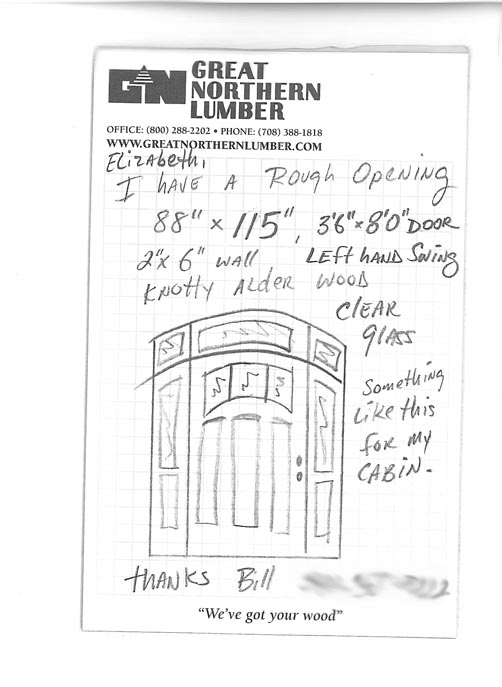 GN GREAT
NORTHERN
LUMBER
OFFICE: (800) 288-2202 • PHONE: (708) 388-1818
WWW.GREATNORTHERNLUMBER.COM
Elizabeth,
I HAVE A Rough Opening
88" x 115", 3'6" x 8'0" DOOR
2" x 6" WALL LEFT HAND Swing
KNOTTY ALDER WOOD
CLEAR
glass
Something
Like this
FOR my
CABIN.
THANKS Bill
"We've got your wood"